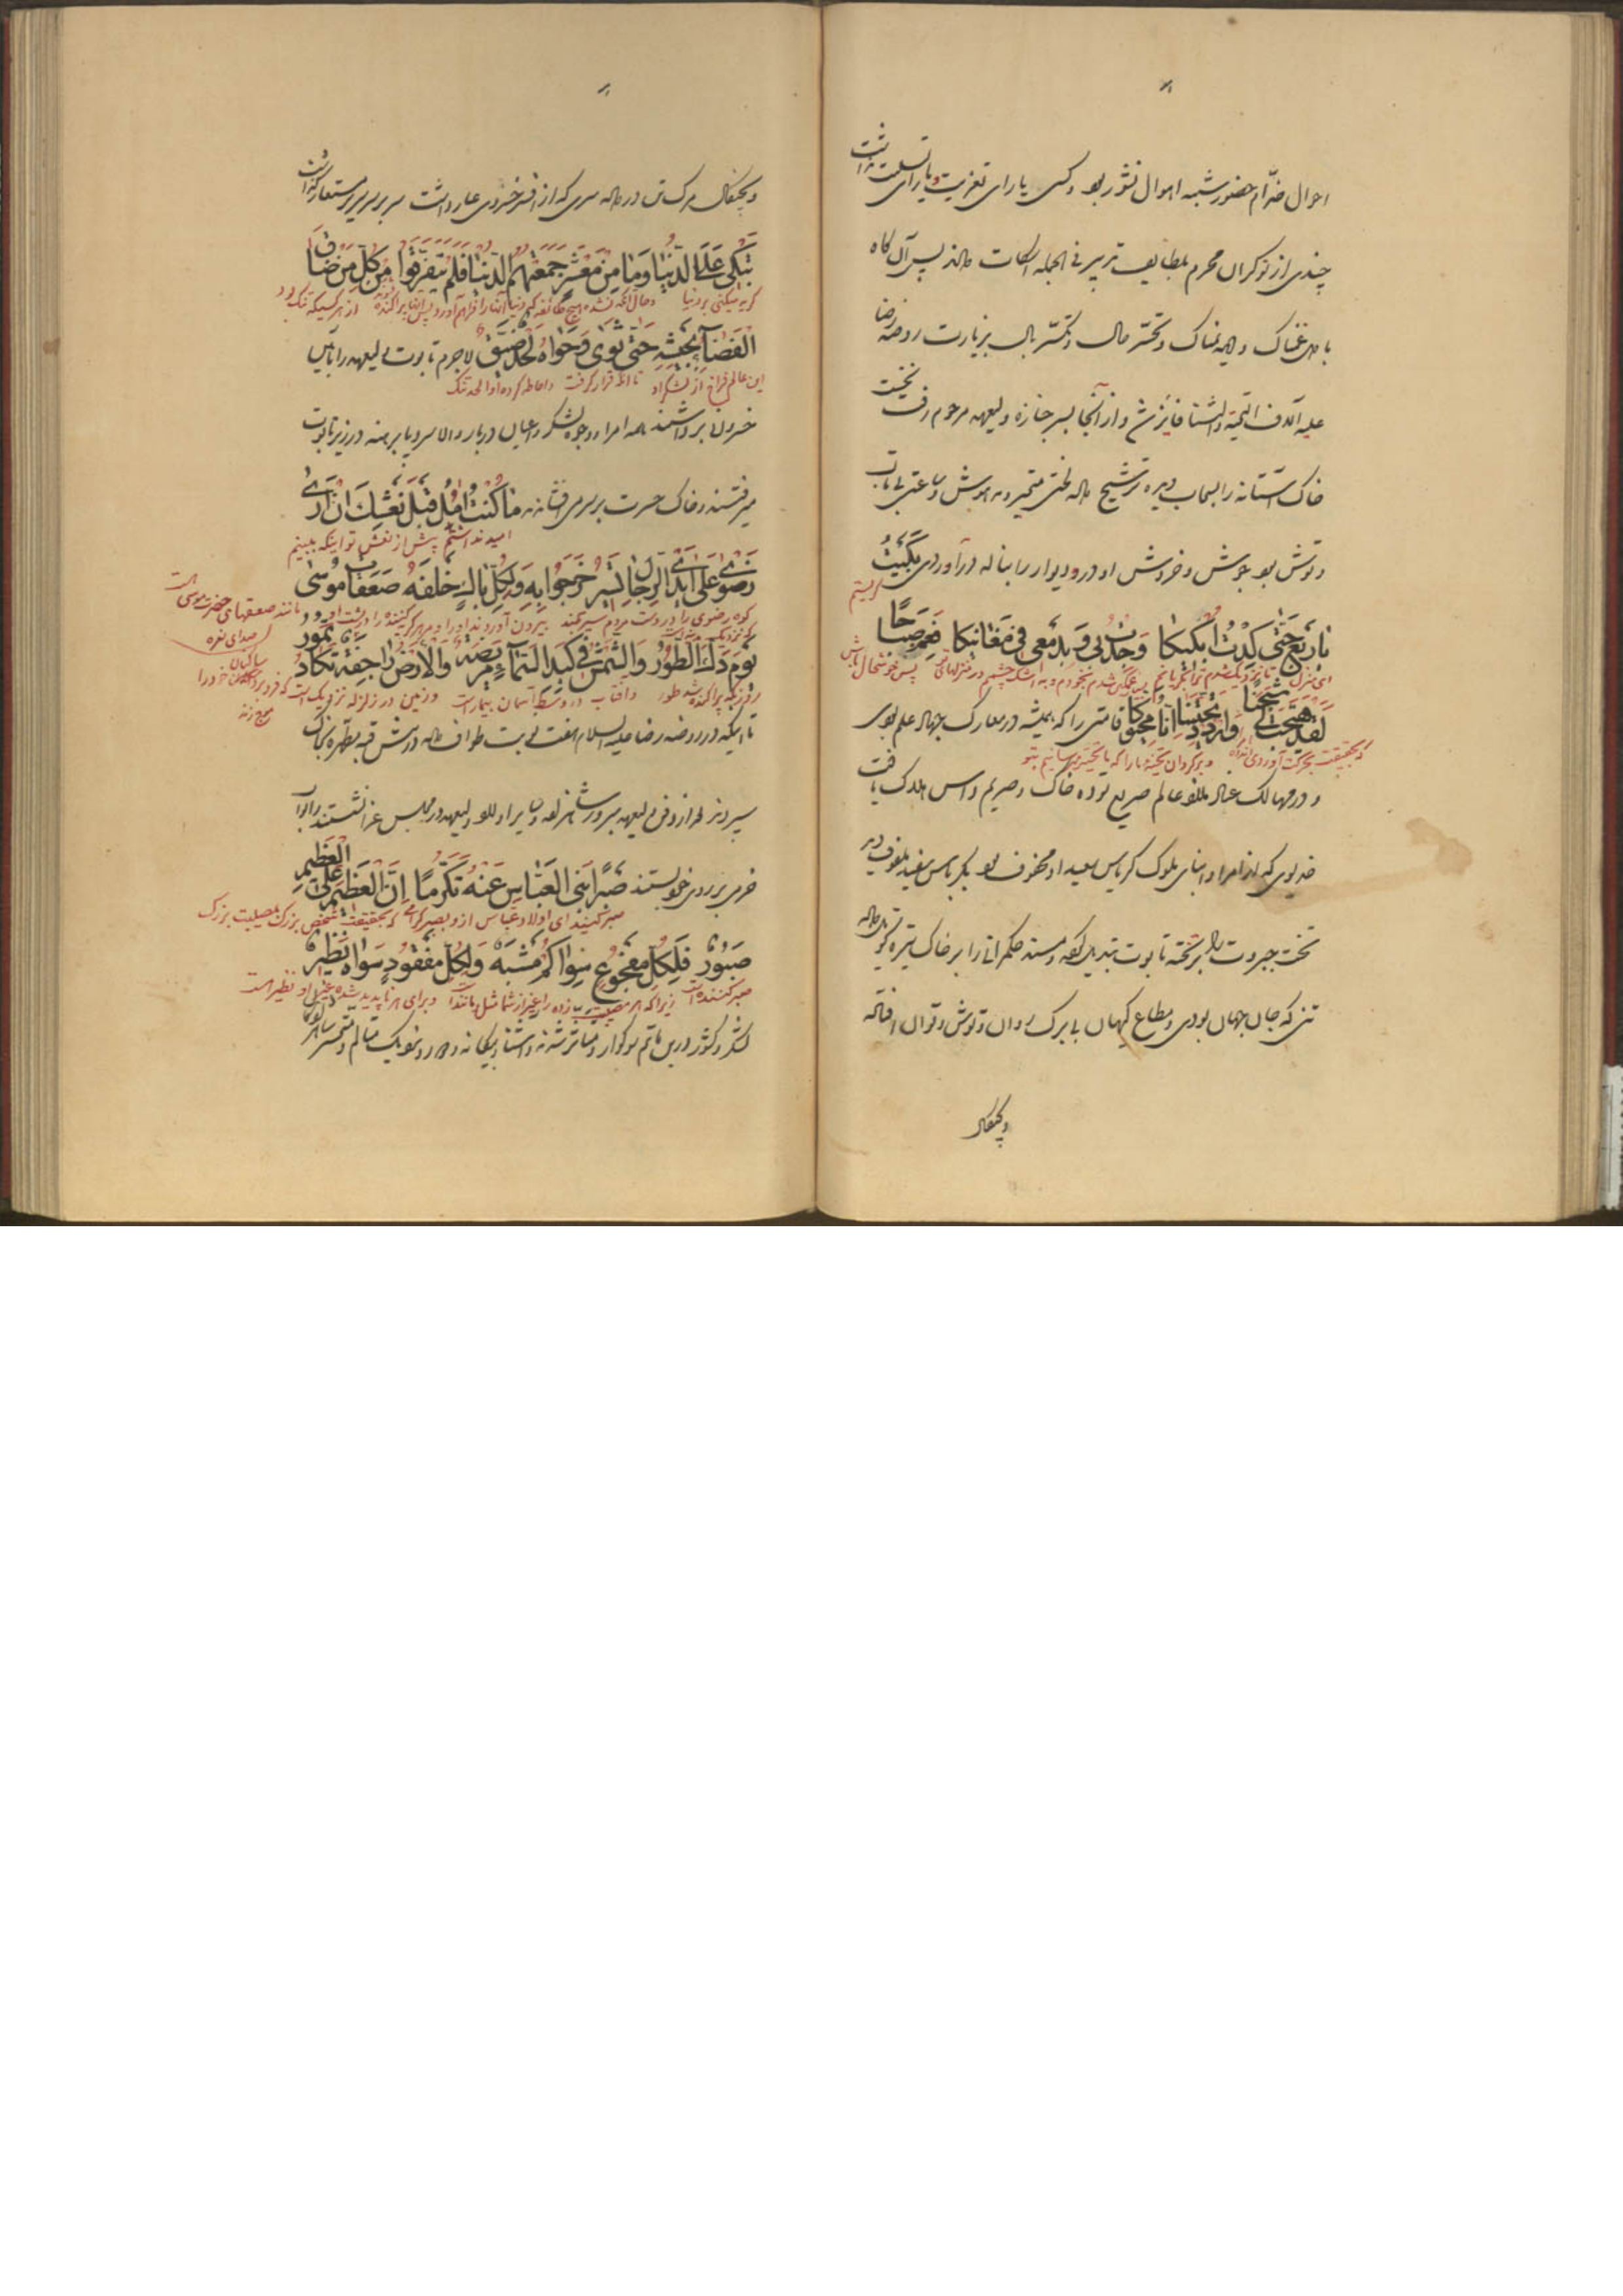 احوال خدّام حضور شبه اهوال نشور بود و کسی یارای تعزیت و یارای تسلیت نداشت
چندی از نوکران محرم بلطایف تدبیر فی الجمله اسکات دادند پس آن کاه
با دلی غمناک و دیده نمناک و تحسّر حال و تکسّر بال بزیارت روضه رضا
علیه آلاف التحیّة والثنا فایز شد و از آنجا بسر جنازه ولیعهد مرحوم رفت نخست
خاک آستانه را بسحاب دیده ترشیح داد لختی متحیر و مدهوش و ساعتی بی تاب
و توش بود بجوش و خروش او در و دیوار را بناله درآوردی بکیت
کریستم
یا ربع حتی کدت ابکیکا وجدت بی و بدمعی فی مغانیکا فعم صباحا
ای منزل تا نزدیک شدم ترا بکریانم و غمگین شدم بخودم و به اشک چشمم در منزلهای تو پس خوشحال باش
لقد هیّجت لی شجنا واردد تحیتنا انا محیوکا قامتی را که همیشه در معارک جهاد علم بودی
که بحقیقت بحرکت آوردی اندوه و برکردان تحیّت ما را که ما تحیّت میرسانیم بتو
و در مهالک عباد ملاذ عالم صریع توده خاک و صریم داس هلاک یافت
خدیوی که از امرا و ابنای ملوک کریاس سعید او محفوف بود بکرباس سفید ملفوف دید
تخت جبروت را بر تخته تابوت تبدیل کرده و مسند حکمرانی را بر خاک تیره تحویل داده
تنی که جان جهان بودی و مطاع کیهان بی برک روان و توش و توان افتاده
و کجفال
و کجفال مرک تن در داده سری که از افسر خسروی عار داشت سر بر سریر مستعار کذاشت
تبکی علی الدنیا وما من معشر جمعتهم الدنیا فلم یتفرقوا من کل من ضاق
کریه میکنی بر دنیا و حال آنکه نشده هیچ طائفه که دنیا آنها را فراهم آورد پس آنها پراکنده نشوند از هر کسیکه تنک بود
الفضاء بجیشه حتی ثوی فحواه لحد ضیق لاجرم تابوت ولیعهد را بآیین
این عالم فراخ از لشکر او تا آنکه قرار کرفت و احاطه کرده او را لحد تنک
خسروان برداشتند همه امرا و وجوه لشکر و اعیان دربار والا سر و پا برهنه در زیر تابوت
میرفتند و خاک حسرت بر سر می افشاندند ما کنت امل قبل نعشک ان اری
امید نداشتم پیش از نعش تو اینکه ببینم
رضوی علی ایدی الرجال یسیر خرجوا به ولکل باک خلفه صعقات موسی
کوه رضوی را در دست مردم سیر میکند بیرون آوردند او را و مر هر کریه کننده را در پشت او مانند صعقهای حضرت موسی است
یوم دک الطور والشمس فی کبد السماء مریضة والارض راجفة تکاد تمور
روزیکه پراکنده شد طور و آفتاب در وسط آسمان بیمار است و زمین در زلزله نزدیک است که فرو برد ساکنان خود را
موج زند
تا اینکه در روضه رضا علیه السلام هفت نوبت طواف داده درش قبه مطهره بخاک
سپردند بعد از دفن ولیعهد مبرور شاهزاده و سایر اولاد ولیعهد در مجلس عزا نشستند و ابواب
خرمی بر روی خود بستند صبرا بنی العباس عنه تکرما ان العظیم علی العظیم
صبر کنید ای اولاد عباس از او بصبر کرامی که بحقیقت شخص بزرک بمصیبت بزرک
صبور فلکل مفجوع سواکم مشبه ولکل مفقود سواه نظیر
صبر کننده است زیرا که هر مصیبت زده را غیر از شما مثل و مانند است و برای هر ناپدید شده غیر او نظیر است
لشکر و کشور درین ماتم سوکوار و متاثر شدند و آشنا و بیکانه و دور و نزدیک متالم و متحسر